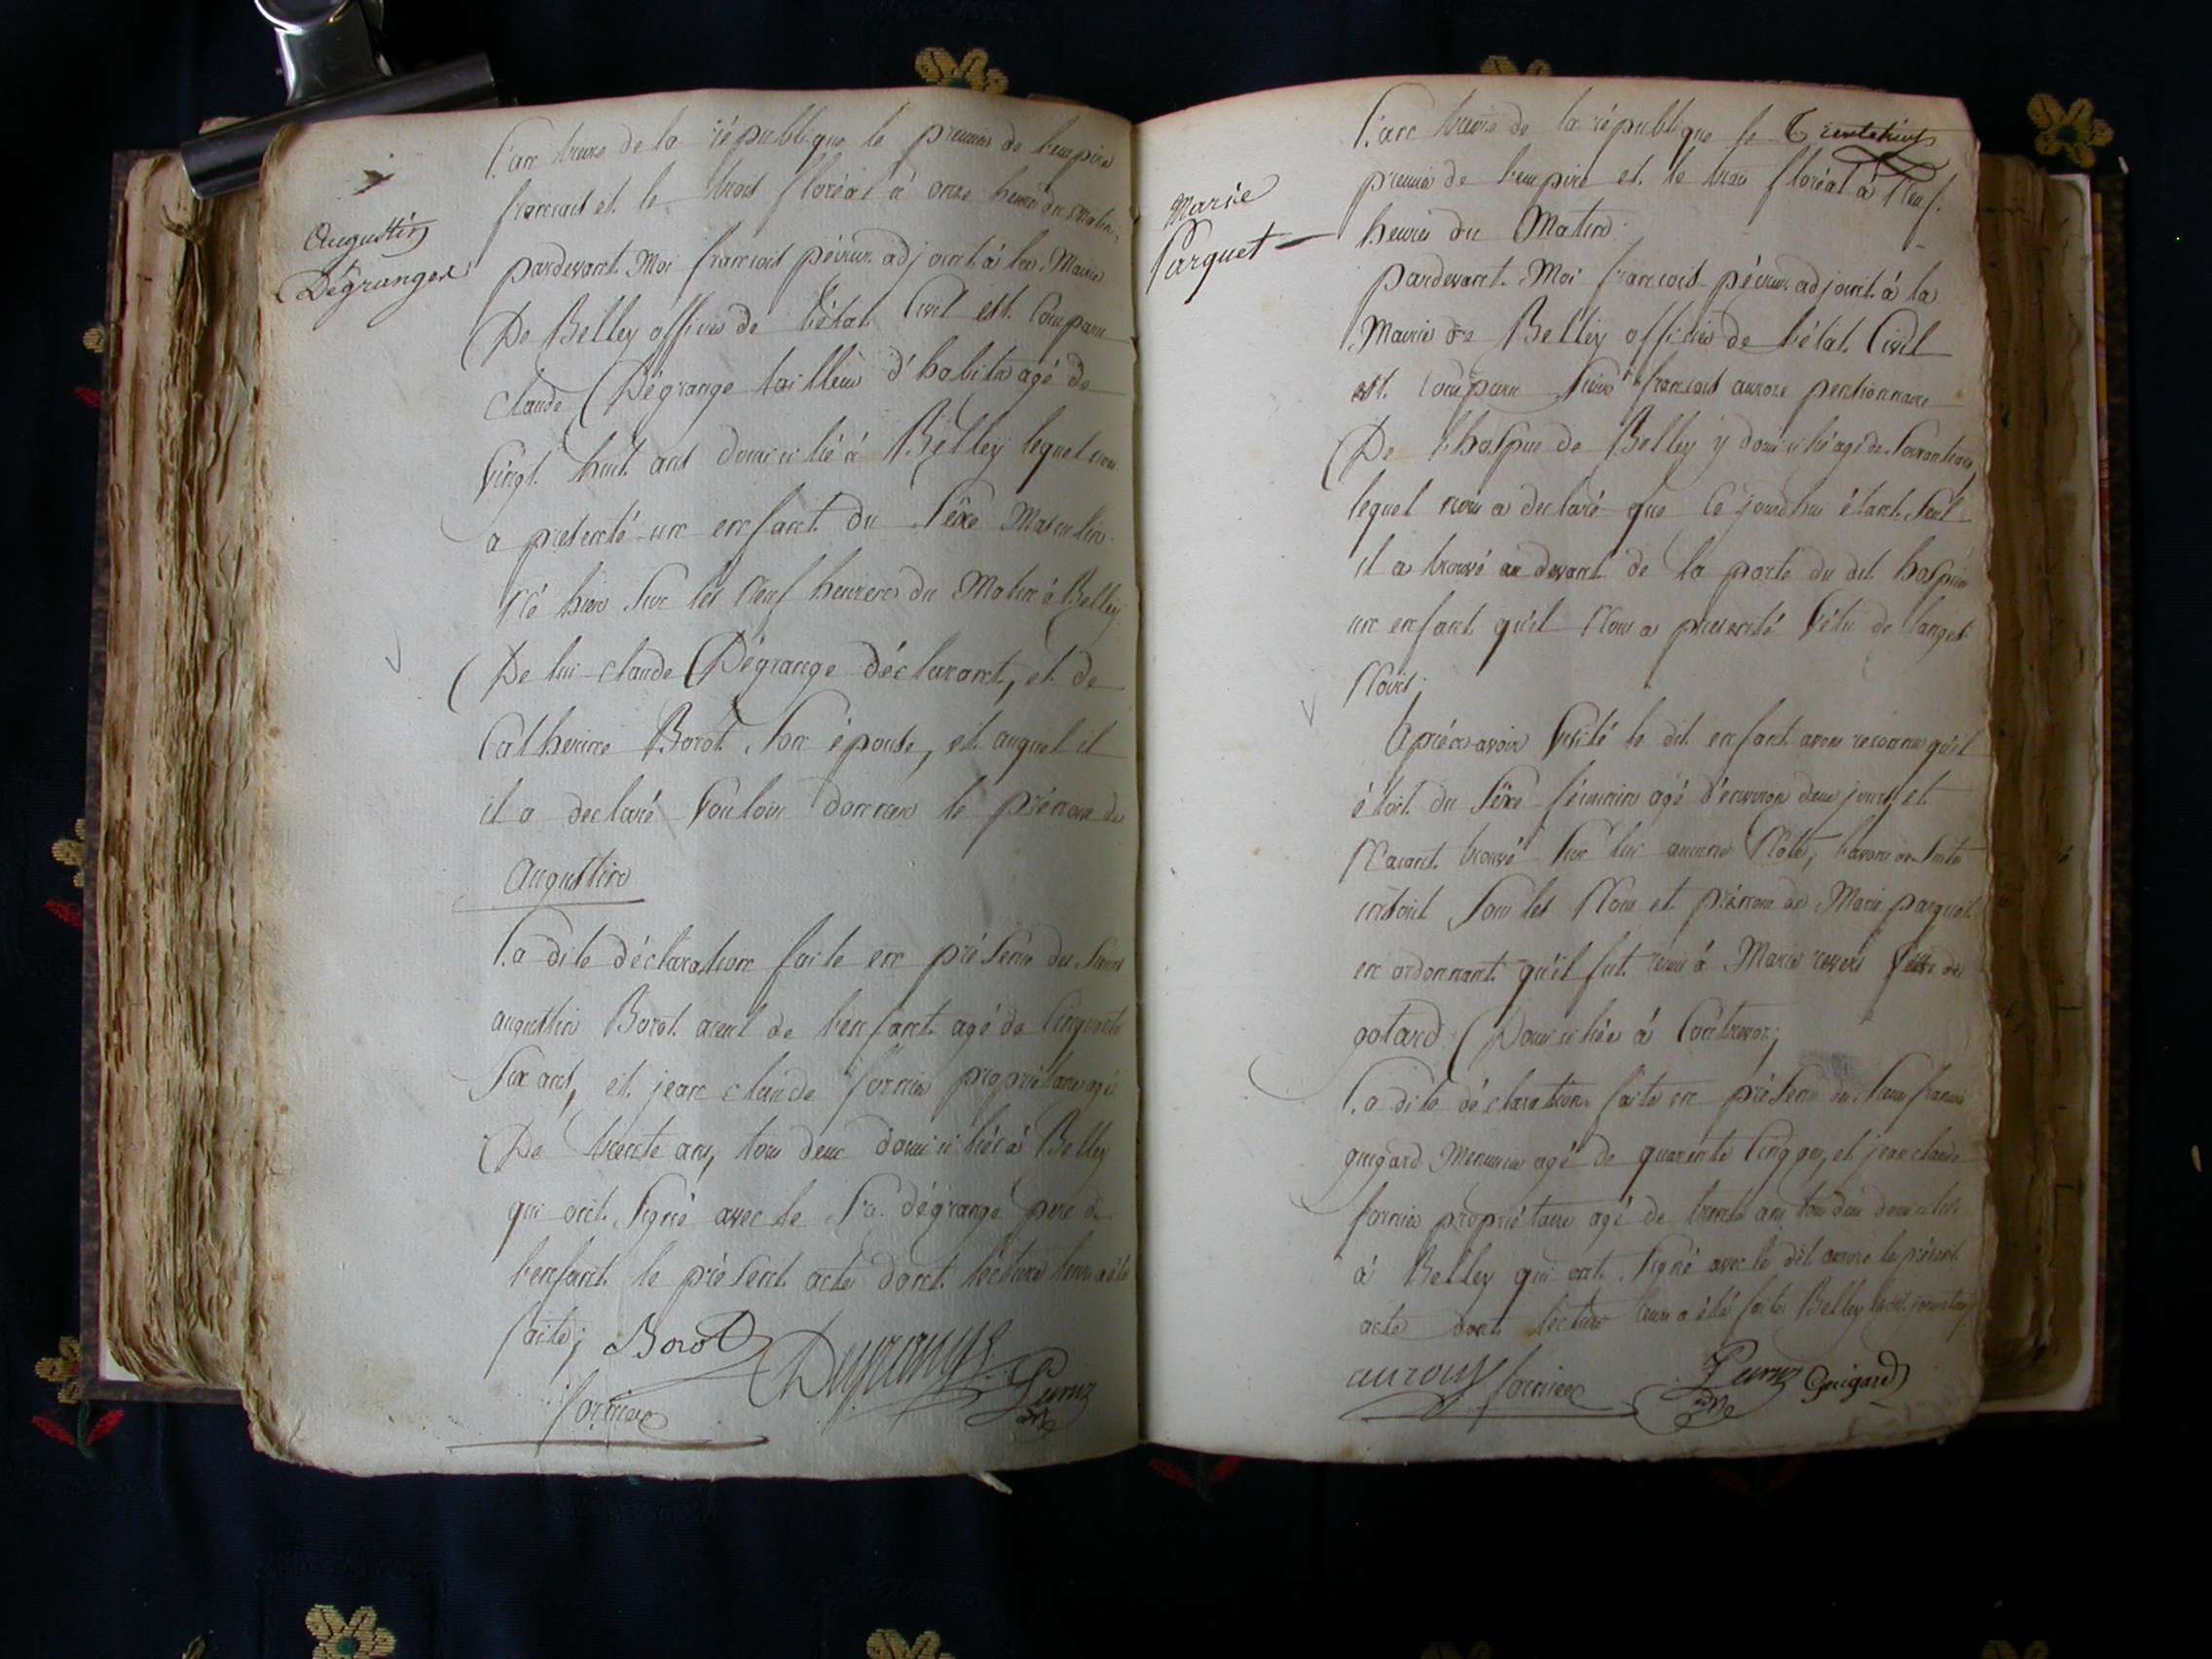 Augustin
Dégranges
L'an treize de la république le premier de l'empire
francois et le trois floréal à onze heures du matin,
pardevant Moi francois péroux adjoint à la Mairie
De Belley officier de l'état Civil est Comparu
claude Dégrange tailleur d'habits agé de
Vingt huit ans domicilié à Belley lequel nou
a presenté un enfant du Séxe Masculin
Né hier Sur les Neuf heures du Matin à Belley
De lui claude Dégrange déclarant, et de
Catherine Borot Son épouse, et auquel il
il a declaré Vouloir donner le prénom de
augustin
La dite déclaration faite en présence des Sieurs
augustin Borot ayeul de l'enfant agé de Cinquante
Six ans, et jean claude fornier propriétaire agé
De trente ans, tous deux domiciliés à Belley
qui ont Signé avec le Sr. dégrange pere de
l'enfant le présent acte dont lecture leur a été
faite; Borot
fornier
Marie
Parquet
L'an treize de la république le
premier de l'empire et le trois floréal à Neuf
heures du Matin
pardevant Moi francois péroux adjoint à la
Mairie de Belley officier de l'état Civil
est Comparu Sieur francois aurore pentionnaire
De l'hospice de Belley y domicilié agé de
lequel nous a declaré que Ce jourdhui étant Seul
il a trouvé au devant de la porte du dit hospice
un enfant qu'il Nous a presenté Vétu de langes
Noirs;
Aprées avoir Visité le dit enfant avons reconnu qu'il
étoit du Séxe féminin agé d'environ deux jours, et
N'aiant trouvé Sur lui aucune Note, l'avons de Suite
inscrit Sous les Nom et prénom de Marie parquet
en ordonnant qu'il fut remis à Marie Veuve de
gotard Domiciliée à Contrevoz;
La dite déclaration faite en présence des Sieurs francois
guigard Menuisier agé de quarente Cinq ans, et jean claude
fornier propriétaire agé de trente ans tous deux domiciliés
à Belley qui ont Signé avec le dit aurore le présent
acte dont lecture leur a été faite Belley
fornier guigard